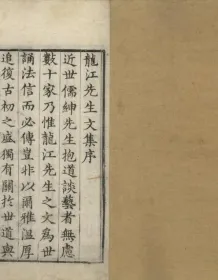 龍江先生文集序
近世儒紳先生抱道談藝者無慮
數十家乃惟龍江先生之文為世
誦法信而必傳豈非以爾雅溫厚
追復古初之盛獨有關扵世道與